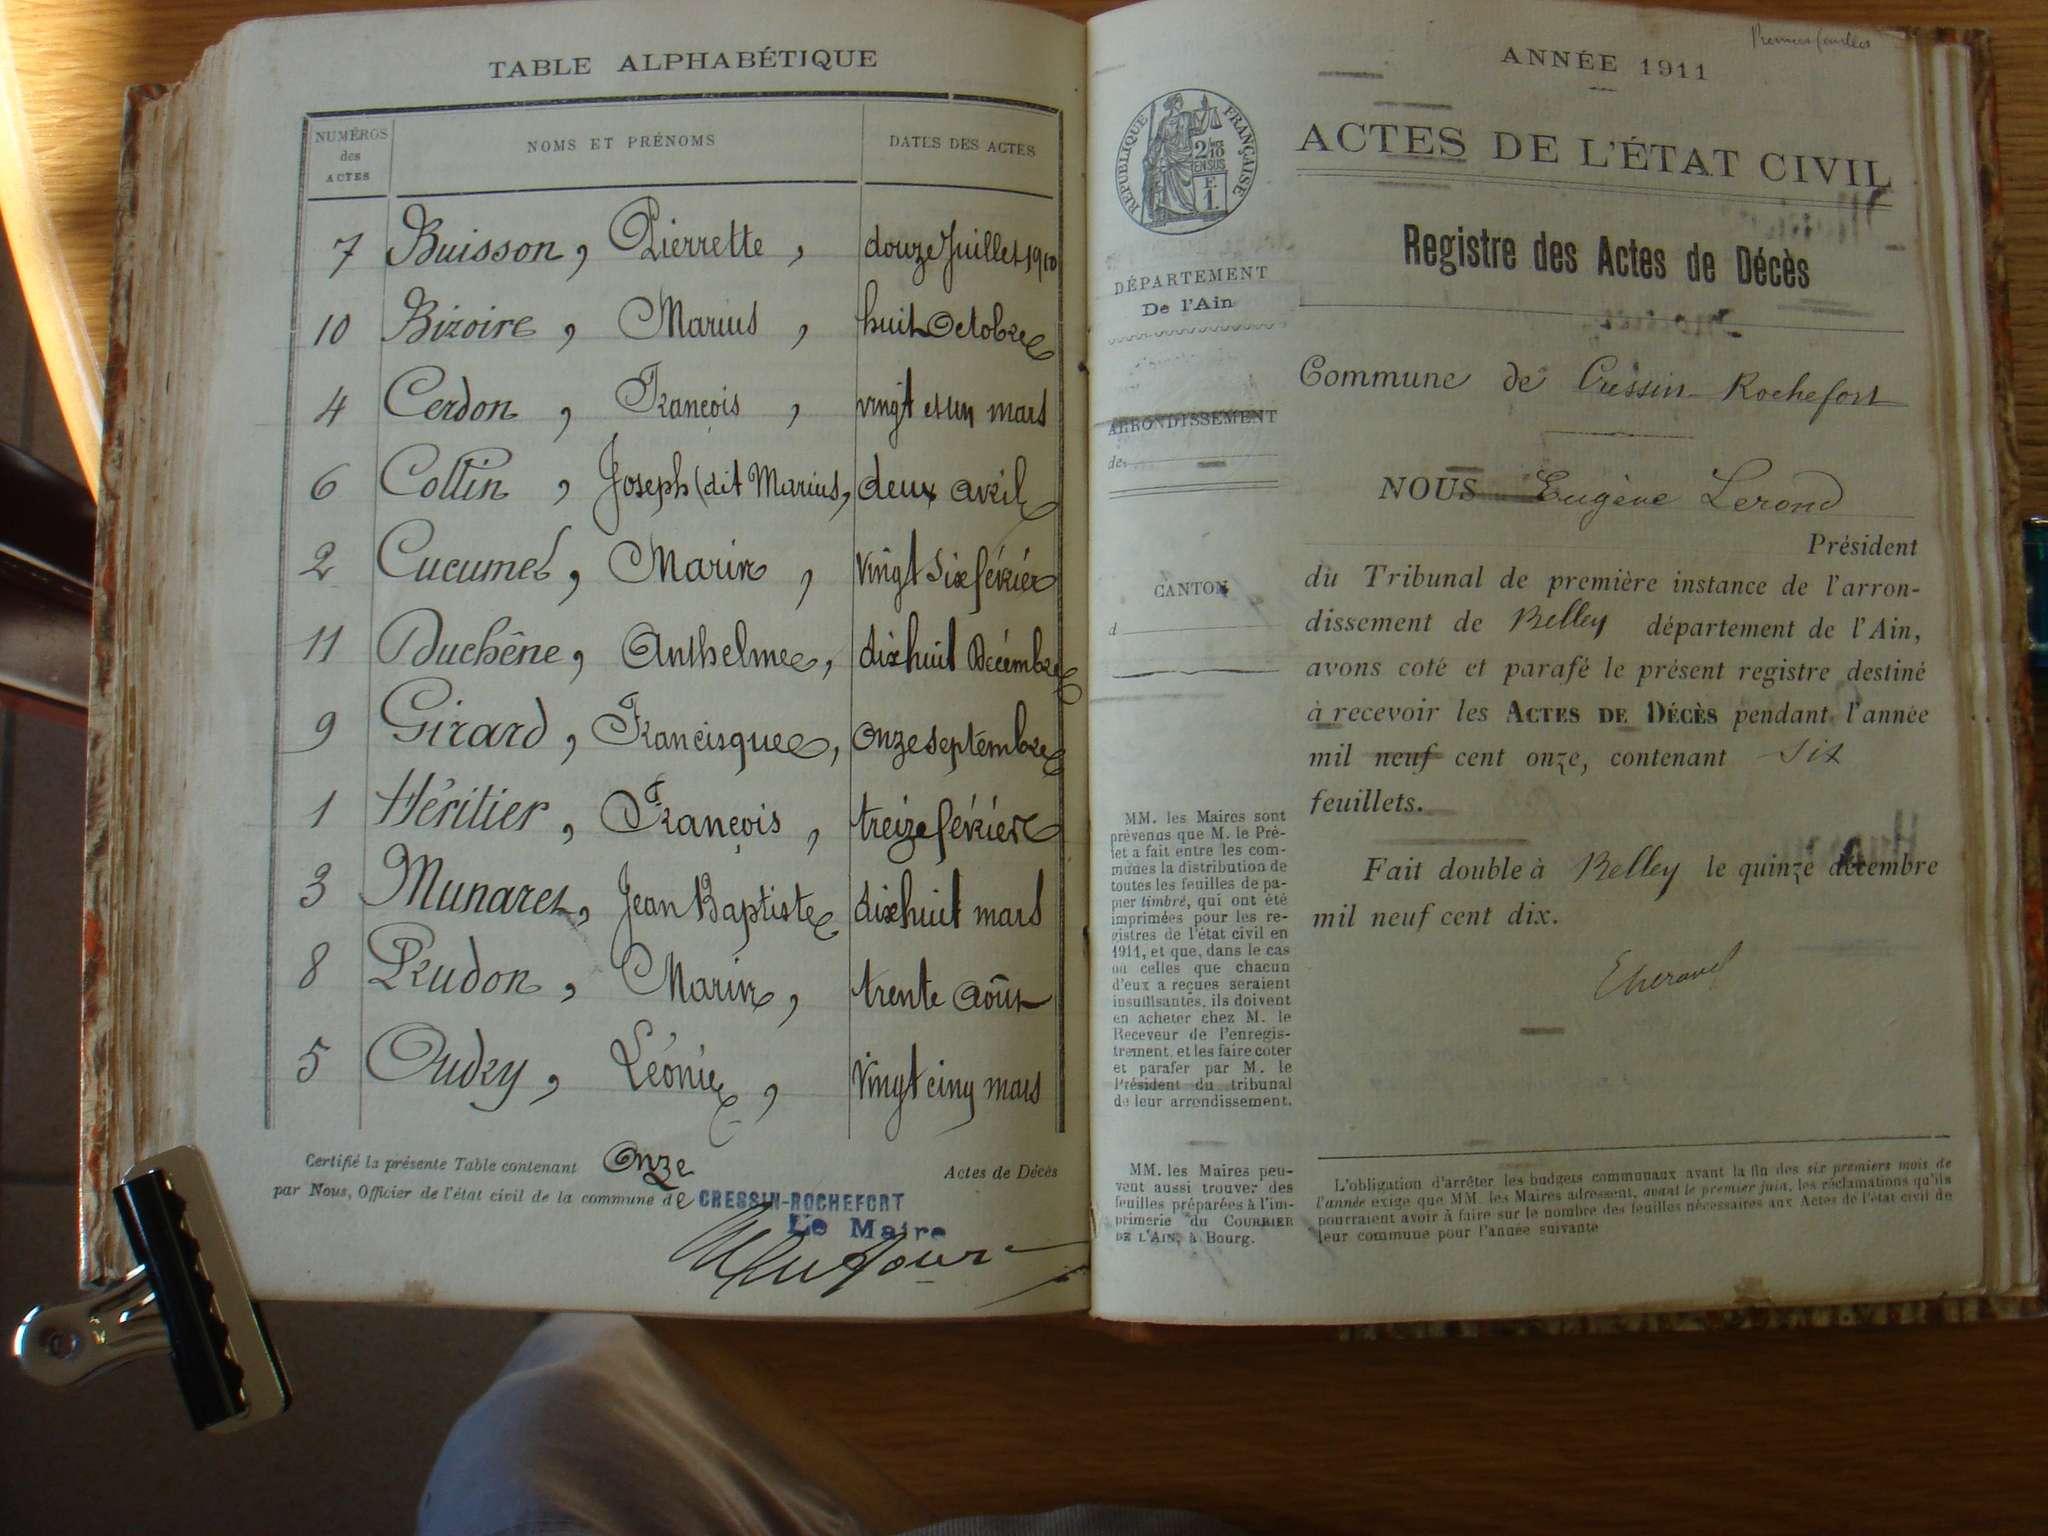 TABLE ALPHABÉTIQUE
NUMÉROS des ACTES NOMS ET PRÉNOMS DATES DES ACTES
7 Buisson, Pierrette, douze Juillet 1910
10 Bizoire, Marius, huit Octobre
4 Cerdon, François, vingt et un mars
6 Collin, Joseph (dit Marius, deux avril
2 Cucumel, Marin, vingt six février
11 Duchêne, Anthelme, dix huit Décembre
9 Girard, Francisque, onze septembre
1 Héritier, François, treize février
3 Munaret, Jean Baptiste dix huit mars
8 Prudon, Marin, trente août
5 Oudry, Léonie, vingt cinq mars
Certifié la présente Table contenant Onze Actes de Décès
par Nous, Officier de l'état civil de la commune de CRESSIN-ROCHEFORT
Le Maire
ANNÉE 1911
ACTES DE L'ÉTAT CIVIL
Registre des Actes de Décès
RÉPUBLIQUE FRANÇAISE
2/10
EN SUS
F.
1.
DÉPARTEMENT
De l'Ain
ARRONDISSEMENT
de
CANTON
d
MM. les Maires sont
prévenus que M. le Pré-
fet a fait entre les com-
munes la distribution de
toutes les feuilles de pa-
pier timbré, qui ont été
imprimées pour les re-
gistres de l'état civil en
1911, et que, dans le cas
où celles que chacun
d'eux a reçues seraient
insuffisantes, ils doivent
en acheter chez M. le
Receveur de l'enregis-
trement, et les faire coter
et parafer par M. le
Président du tribunal
de leur arrondissement.
MM. les Maires peu-
vent aussi trouver des
feuilles préparées à l'im-
primerie du COURRIER
DE L'AIN, à Bourg.
Commune de Cressin-Rochefort
NOUS Eugène Lerond
Président
du Tribunal de première instance de l'arron-
dissement de Belley département de l'Ain,
avons coté et parafé le présent registre destiné
à recevoir les ACTES DE DÉCÈS pendant l'année
mil neuf cent onze, contenant six
feuillets.
Fait double à Belley le quinze décembre
mil neuf cent dix.
L'obligation d'arrêter les budgets communaux avant la fin des six premiers mois de
l'année exige que MM. les Maires adressent, avant le premier juin, les réclamations qu'ils
pourraient avoir à faire sur le nombre des feuilles nécessaires aux Actes de l'état civil de
leur commune pour l'année suivante